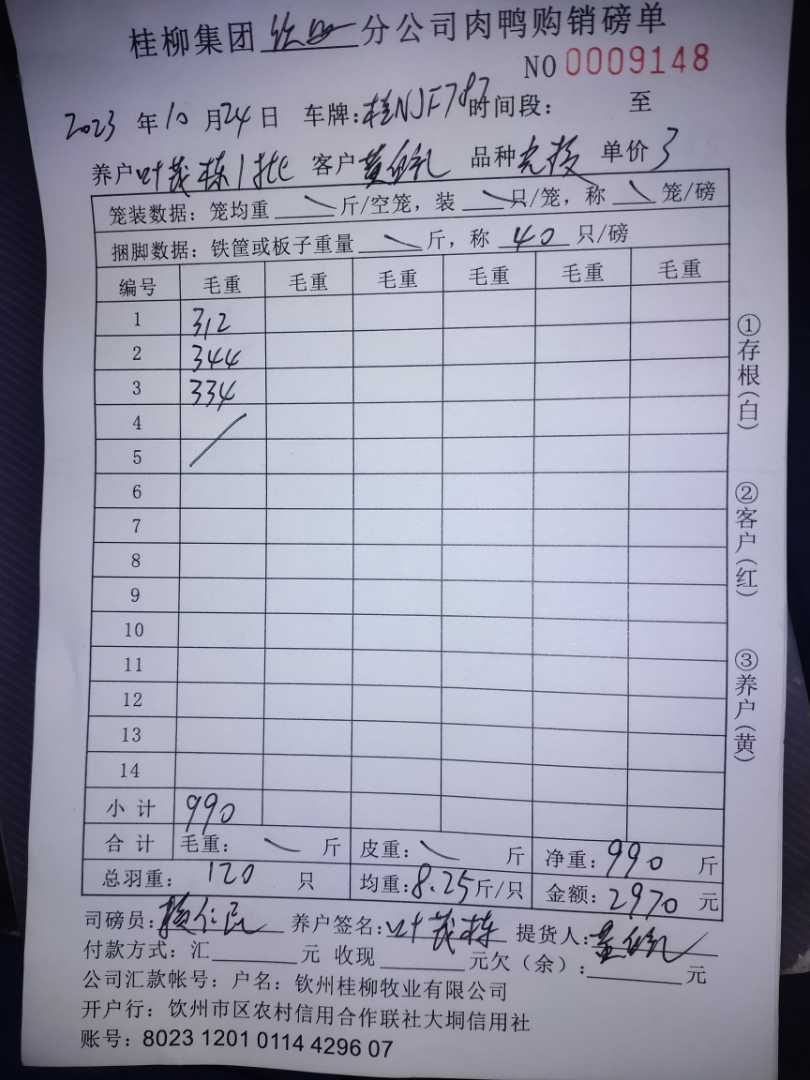 桂柳集团 钦州 分公司肉鸭购销磅单
NO 0009148
2023 年 10 月 24 日 车牌：桂NJF787 时间段： 至
养户 叶茂栋1批 客户 品种 单价 3
笼装数据：笼均重 \ 斤/空笼，装 \ 只/笼，称 \ 笼/磅
捆脚数据：铁筐或板子重量 \ 斤，称 40 只/磅
编号 毛重 毛重 毛重 毛重 毛重 毛重
1 312
2 344
3 334
4
5
6
7
8
9
10
11
12
13
14
小计 990
合计 毛重： \ 斤 皮重： \ 斤 净重：990 斤
总羽重： 120 只 均重：8.25 斤/只 金额：2970 元
司磅员： 仁民 养户签名：叶茂栋 提货人：
付款方式：汇 元 收现 元欠（余）： 元
公司汇款帐号：户名：钦州桂柳牧业有限公司
开户行：钦州市区农村信用合作联社大垌信用社
账号：8023 1201 0114 4296 07
①存根（白）
②客户（红）
③养户（黄）